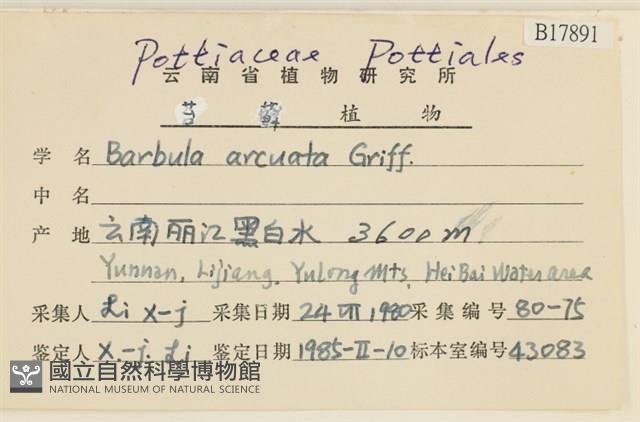 B17891
Pottiaceae Pottiales
云南省植物研究所
苔藓植物
学名 Barbula arcuata Griff.
中名
产地 云南丽江黑白水 3600m
Yunnan, Lijiang, Yulong Mts, Hei Bai Water area
采集人 Li X-j 采集日期 24 VII 1980 采集编号 80-75
鉴定人 X.-j. Li 鉴定日期 1985-II-10 标本室编号 43083
國立自然科學博物館
NATIONAL MUSEUM OF NATURAL SCIENCE